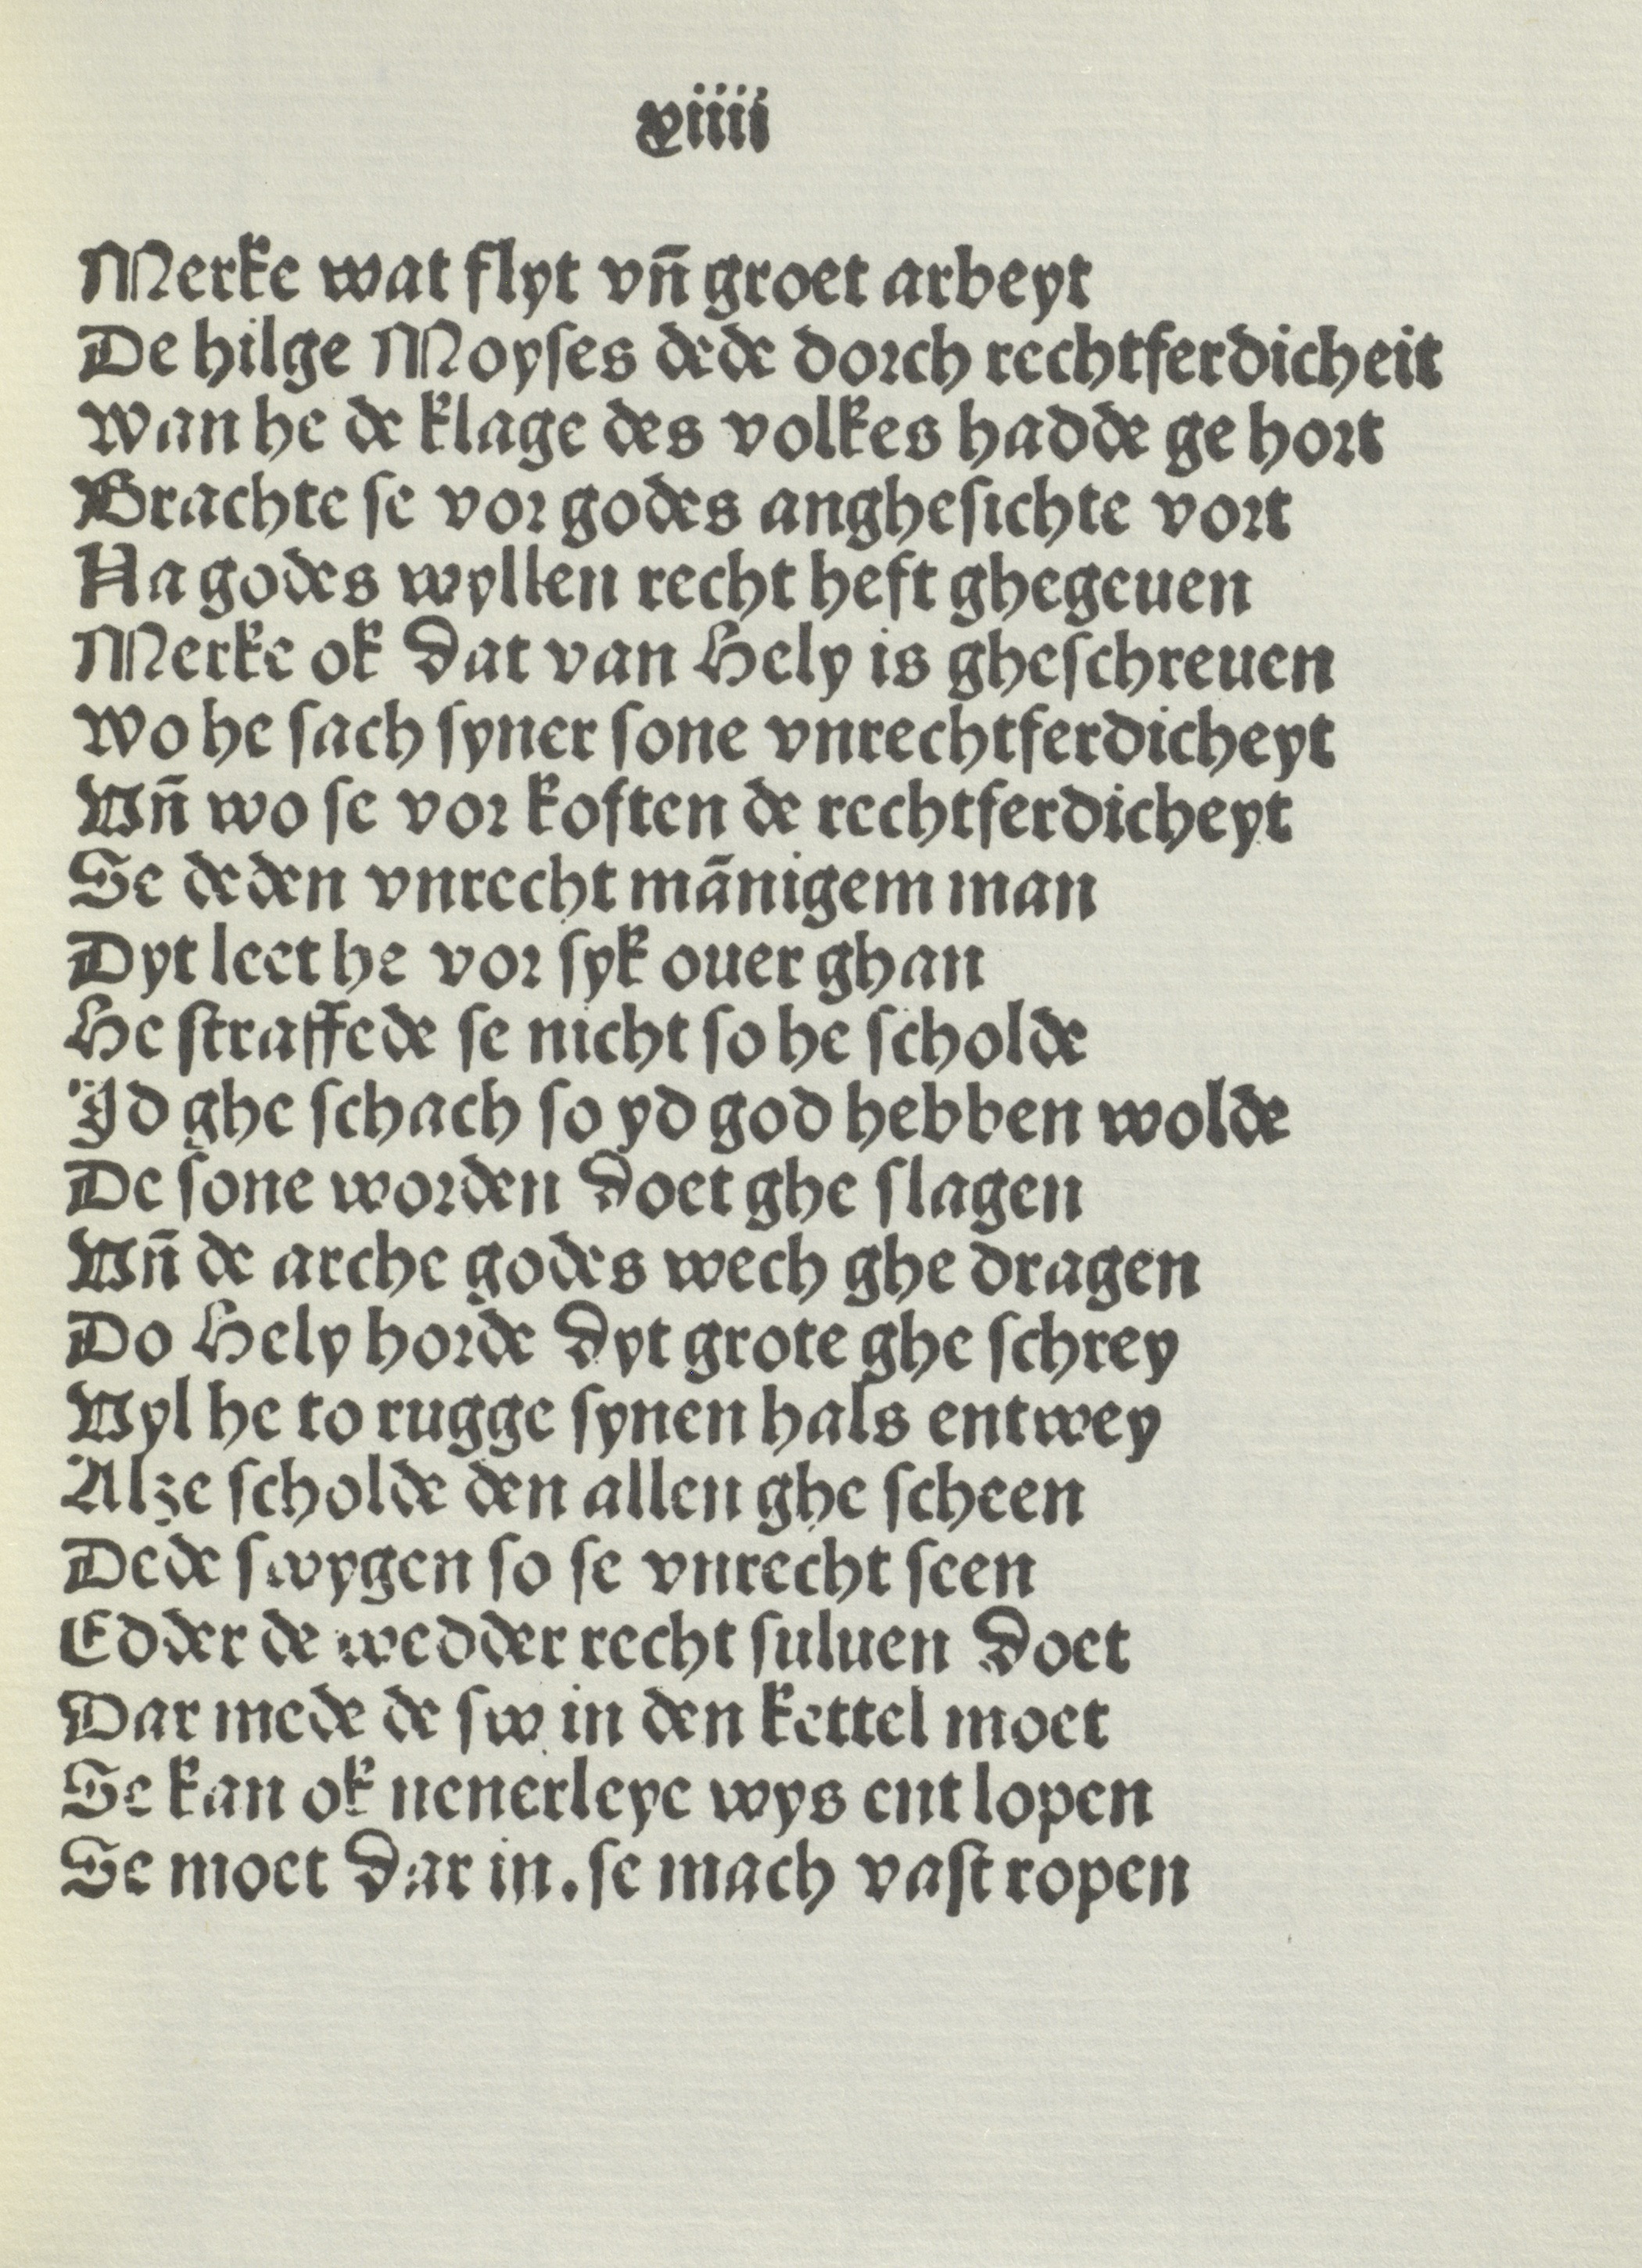 xiiii
Merke wat flyt vn̄ groet arbeyt
De hilge Moyſes dede dorch rechtferdicheit
Wan he de klage des volkes hadde ge hort
Brachte ſe vor godes angheſichte vort
Na godes wyllen recht heft ghegeuen
Merke ok dat van Hely is gheſchreuen
Wo he ſach ſyner ſone vnrechtferdicheyt
Vn̄ wo ſe vor koften de rechtferdicheyt
Se deden vnrecht mānigem man
Dyt leet he vor ſyk ouer ghan
He ſtraffede ſe nicht ſo he ſcholde
Jd ghe ſchach ſo yd god hebben wolde
De ſone worden doet ghe ſlagen
Vn̄ de arche godes wech ghe dragen
Do Hely horde dyt grote ghe ſchrey
Vyl he to rugge ſynen hals entwey
Alze ſcholde den allen ghe ſcheen
Dede ſwygen ſo ſe vnrecht ſeen
Edder de wedder recht ſuluen doet
Dar mede de ſw in den kettel moet
Se kan ok nenerleye wys ent lopen
Se moet dar in. ſe mach vaſt ropen